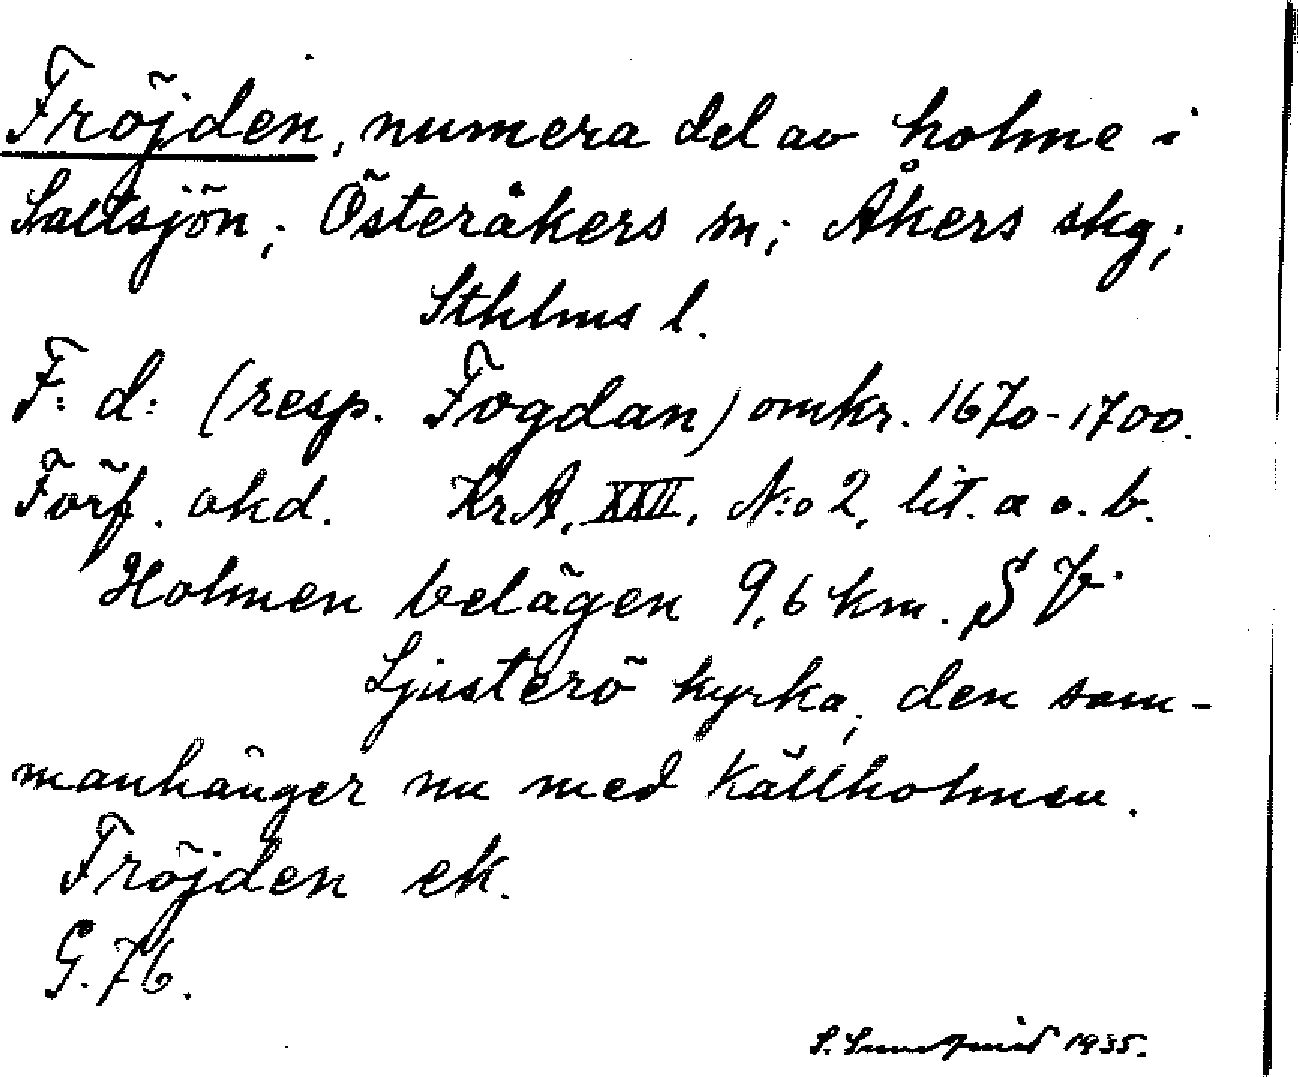 Fröjden, numera del av holme i
Saltsjön; Österåkers sn; Åkers skg;
Sthlms l.
F: d: (resp. Fogdan) omkr. 1670-1700.
Förf. okd. KrA, XXII, N:o 2, lit. a o. b.
Holmen belägen 9,6 km. S V
Ljusterö kyrka; den sam-
manhänger nu med Källholmen.
Fröjden ek.
G. 76.
S. 1935.